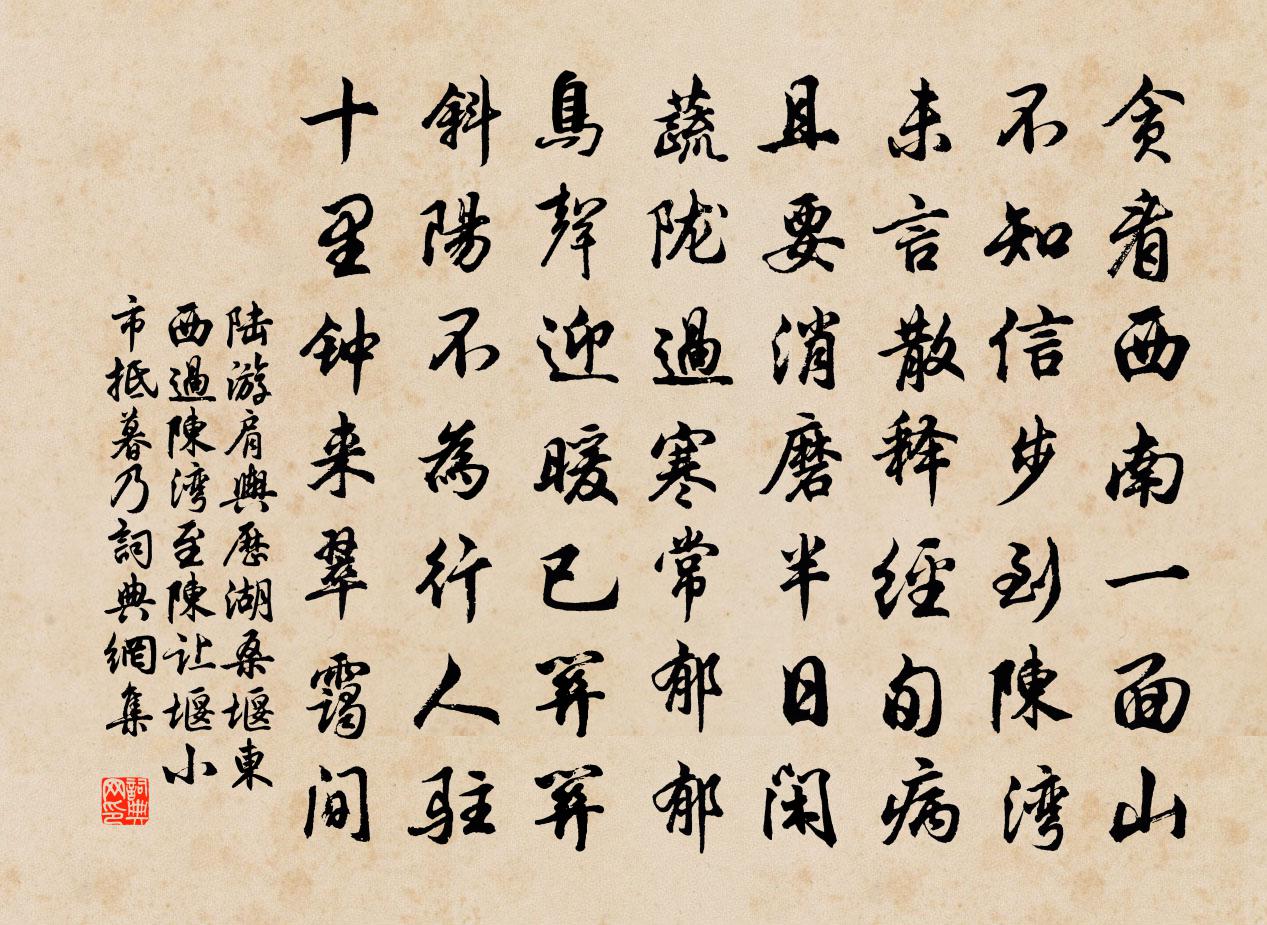 贪看西南一面山
不知信步到陳湾
未言散释經旬病
且要消磨半日閑
蔬陇過寒常郁郁
鳥聲迎暖已關關
斜陽不為行人駐
十里钟来翠靄間
陆游肩輿歷湖桑堰東
西過陳湾至陳让堰小
市抵暮乃詞典網集
詞典网印